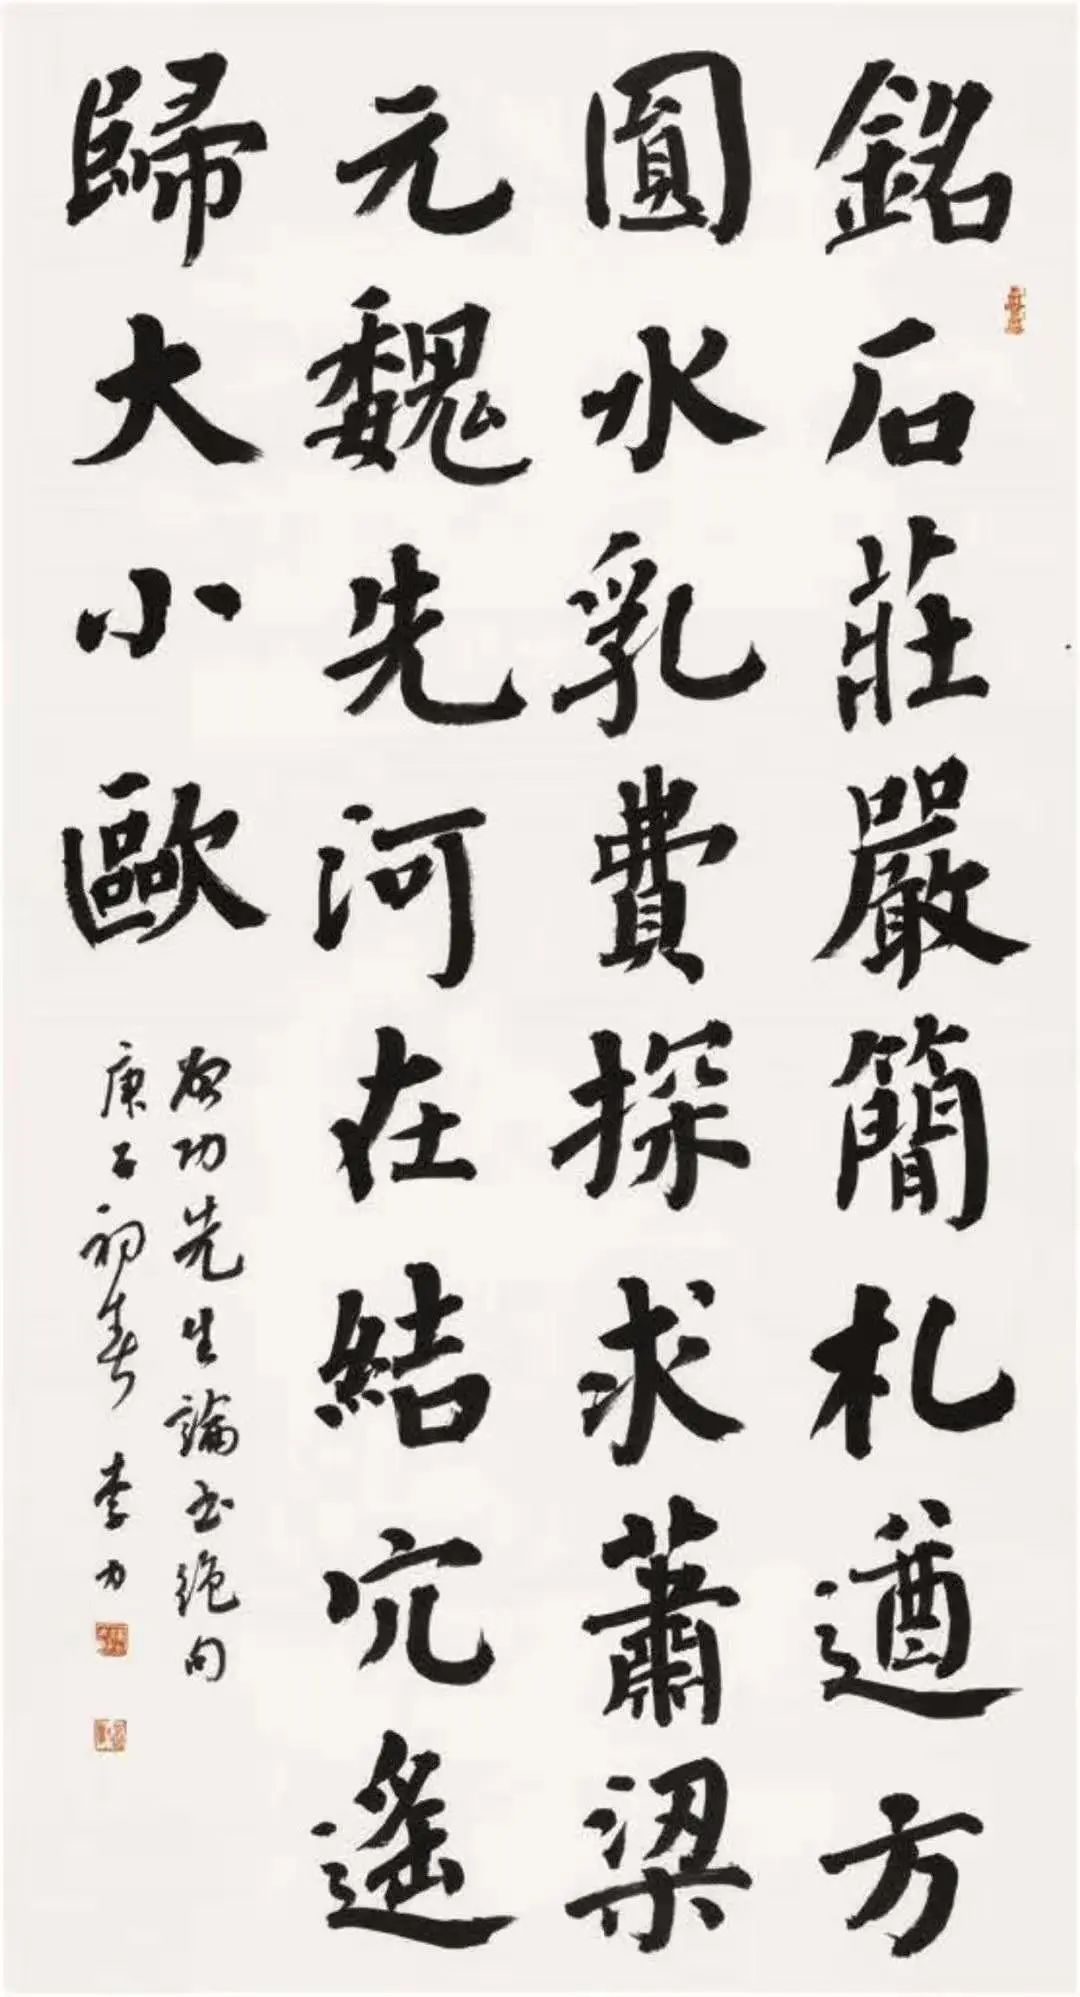 銘石莊嚴簡札遒方
圓水乳費探求蕭梁
元魏先河在結穴遙
歸大小歐
啓功先生論书絶句
庚子初春 李力